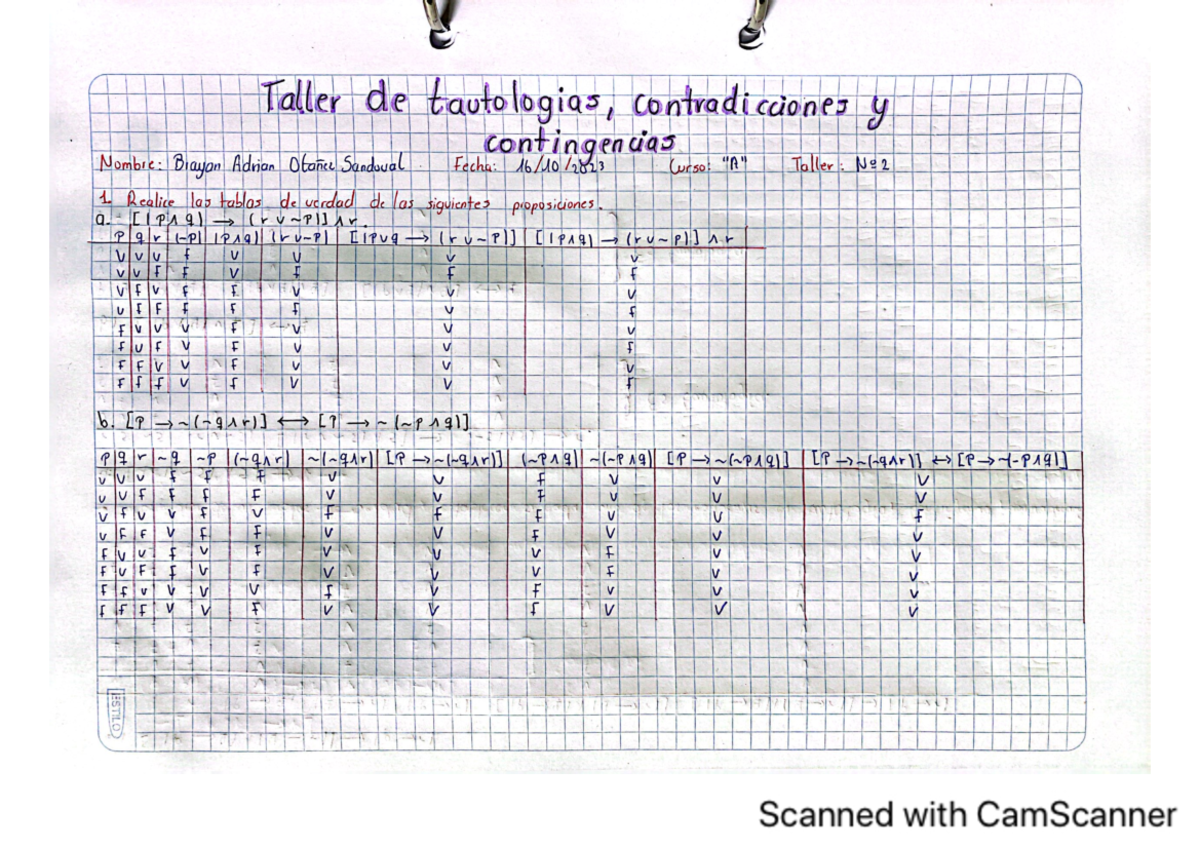 Taller de tautologias, contradicciones y
contingencias
Nombre: Brayan Adrian Otañez Sandoval. Fecha: 16/10/2023 Curso: "A" Taller: Nº2
1. Realice las tablas de verdad de las siguientes proposiciones.
a. [(p∧q) → (r ∨ ~p)] ∧ r.
p q r (~p) (p∧q) (r ∨ ~p) [(p∨q → (r ∨ ~p)] [(p∧q) → (r ∨ ~p)] ∧ r
V V V f V V V V
V V f f V f f f
V f V f f V V V
V f f f f f V f
f V V V f V V V
f V f V f V V f
f f V V f V V V
f f f V f V V f
b. [p → ~(~q∧r)] ⟷ [p → ~(~p∧q)]
p q r ~q ~p (~q∧r) ~(~q∧r) [p → ~(~q∧r)] (~p∧q) ~(~p∧q) [p → ~(~p∧q)] [p → ~(~q∧r)] ↔ [p → ~(~p∧q)]
V V V f f f V V f V V V
V V f f f f V V f V V V
V f V V f V f f f V V f
V f f V f f V V f V V V
f V V f V f V V V f V V
f V f f V f V V V f V V
f f V V V V f V f V V V
f f f V V f V V f V V V
ESTILO
Scanned with CamScanner